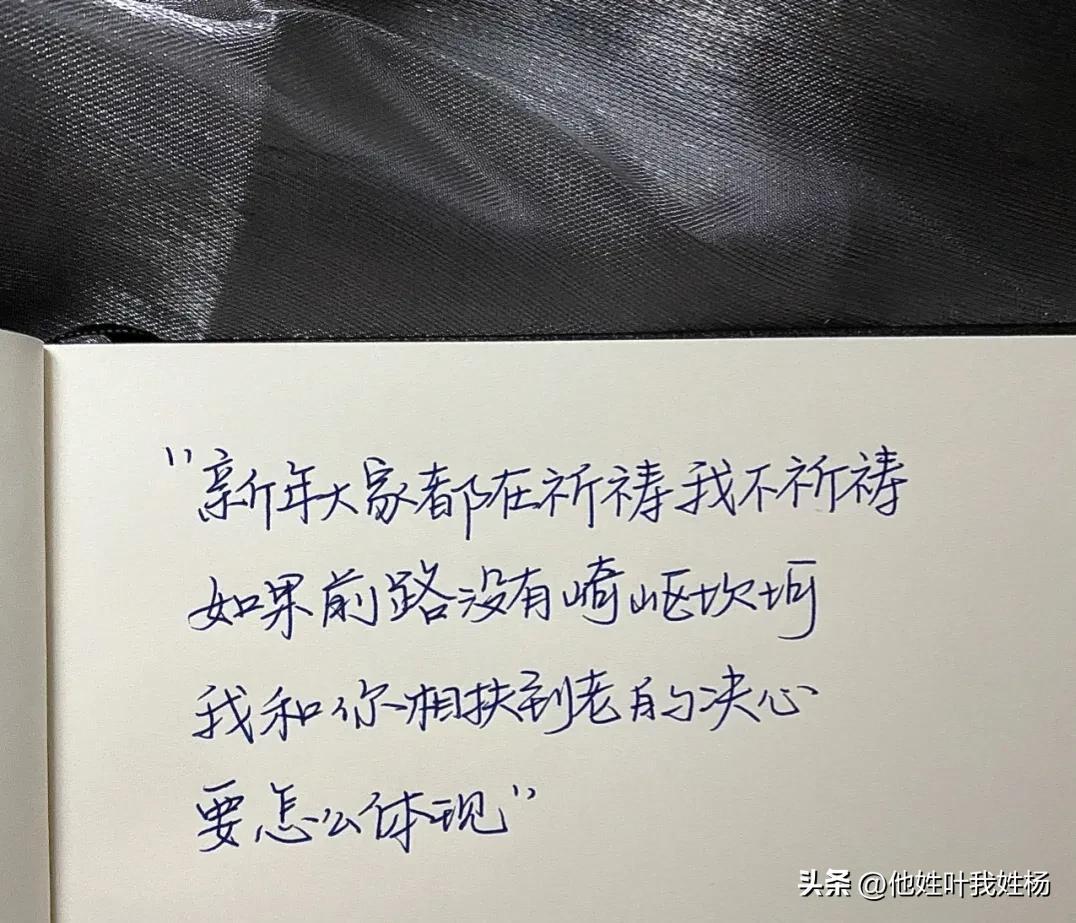 "新年大家都在祈祷我不祈祷
如果前路没有崎岖坎坷
我和你相扶到老的决心
要怎么体现"
头条 @他姓叶我姓杨